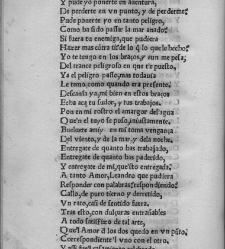 Y pude yo ponerte en auentura,
De perderte en vn punto, y de perderme?
Pude ponerte yo en tanto peligro,
Como ha sido passar la mar anado?
Si fuera tu enemigo, que pudiera
Hazer mas cõtra ti de lo q̃ lo que he hecho?
Yo te tengo en los braços, y aun me pesa,
Del trance peligroso en que te puesto,
Ya el peligro passo, mas todauia
Le temo como quando era presente.
Descansa ya mi bien en estos braços
Echa acà tu suelor, y tus trabajos.
Pon en mi rostro el amargor del agua
Qu'en el tuyo se puso injustamente.
Bueluete a mi y en mi toma vengança
Del viento, y de la mar, y dela noche,
Entregate de quanto has trabajado,
Entregate de quanto has padecido,
Y entregate de mi, que'sto entregada.
A tanto Amor, Leandro que pudiera
Responder con palabras, respondiendo?
Callo, de puro tierno y derretido,
Vn rato, casi de sentido fuera.
Tras esto, con dulçuras entrañables
A todo satisfizo de tal arte,
Que'l Amor à los dos quedo en vn pũto,
Correspondiente'l vno con el otro,